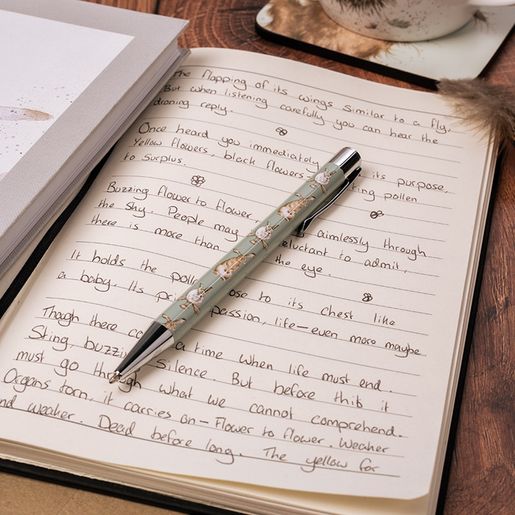 The flapping of its wings similar to a fly.
But when listening carefully you can hear the
droning reply.
Once heard you immediately its purpose.
Yellow flowers, black flowers pollen
to surplus.
Buzzing flower to flower, aimlessly through
the sky. People may reluctant to admit,
there is more than the eye.
It holds the close to its chest like
a baby. Its passion, life—even more maybe
Though there a time when life must end
Sting, buzzing silence. But before this it
must go through what we cannot comprehend.
Organs torn, it carries on—Flower to flower. Weaker
and weaker. Dead before long. The yellow for